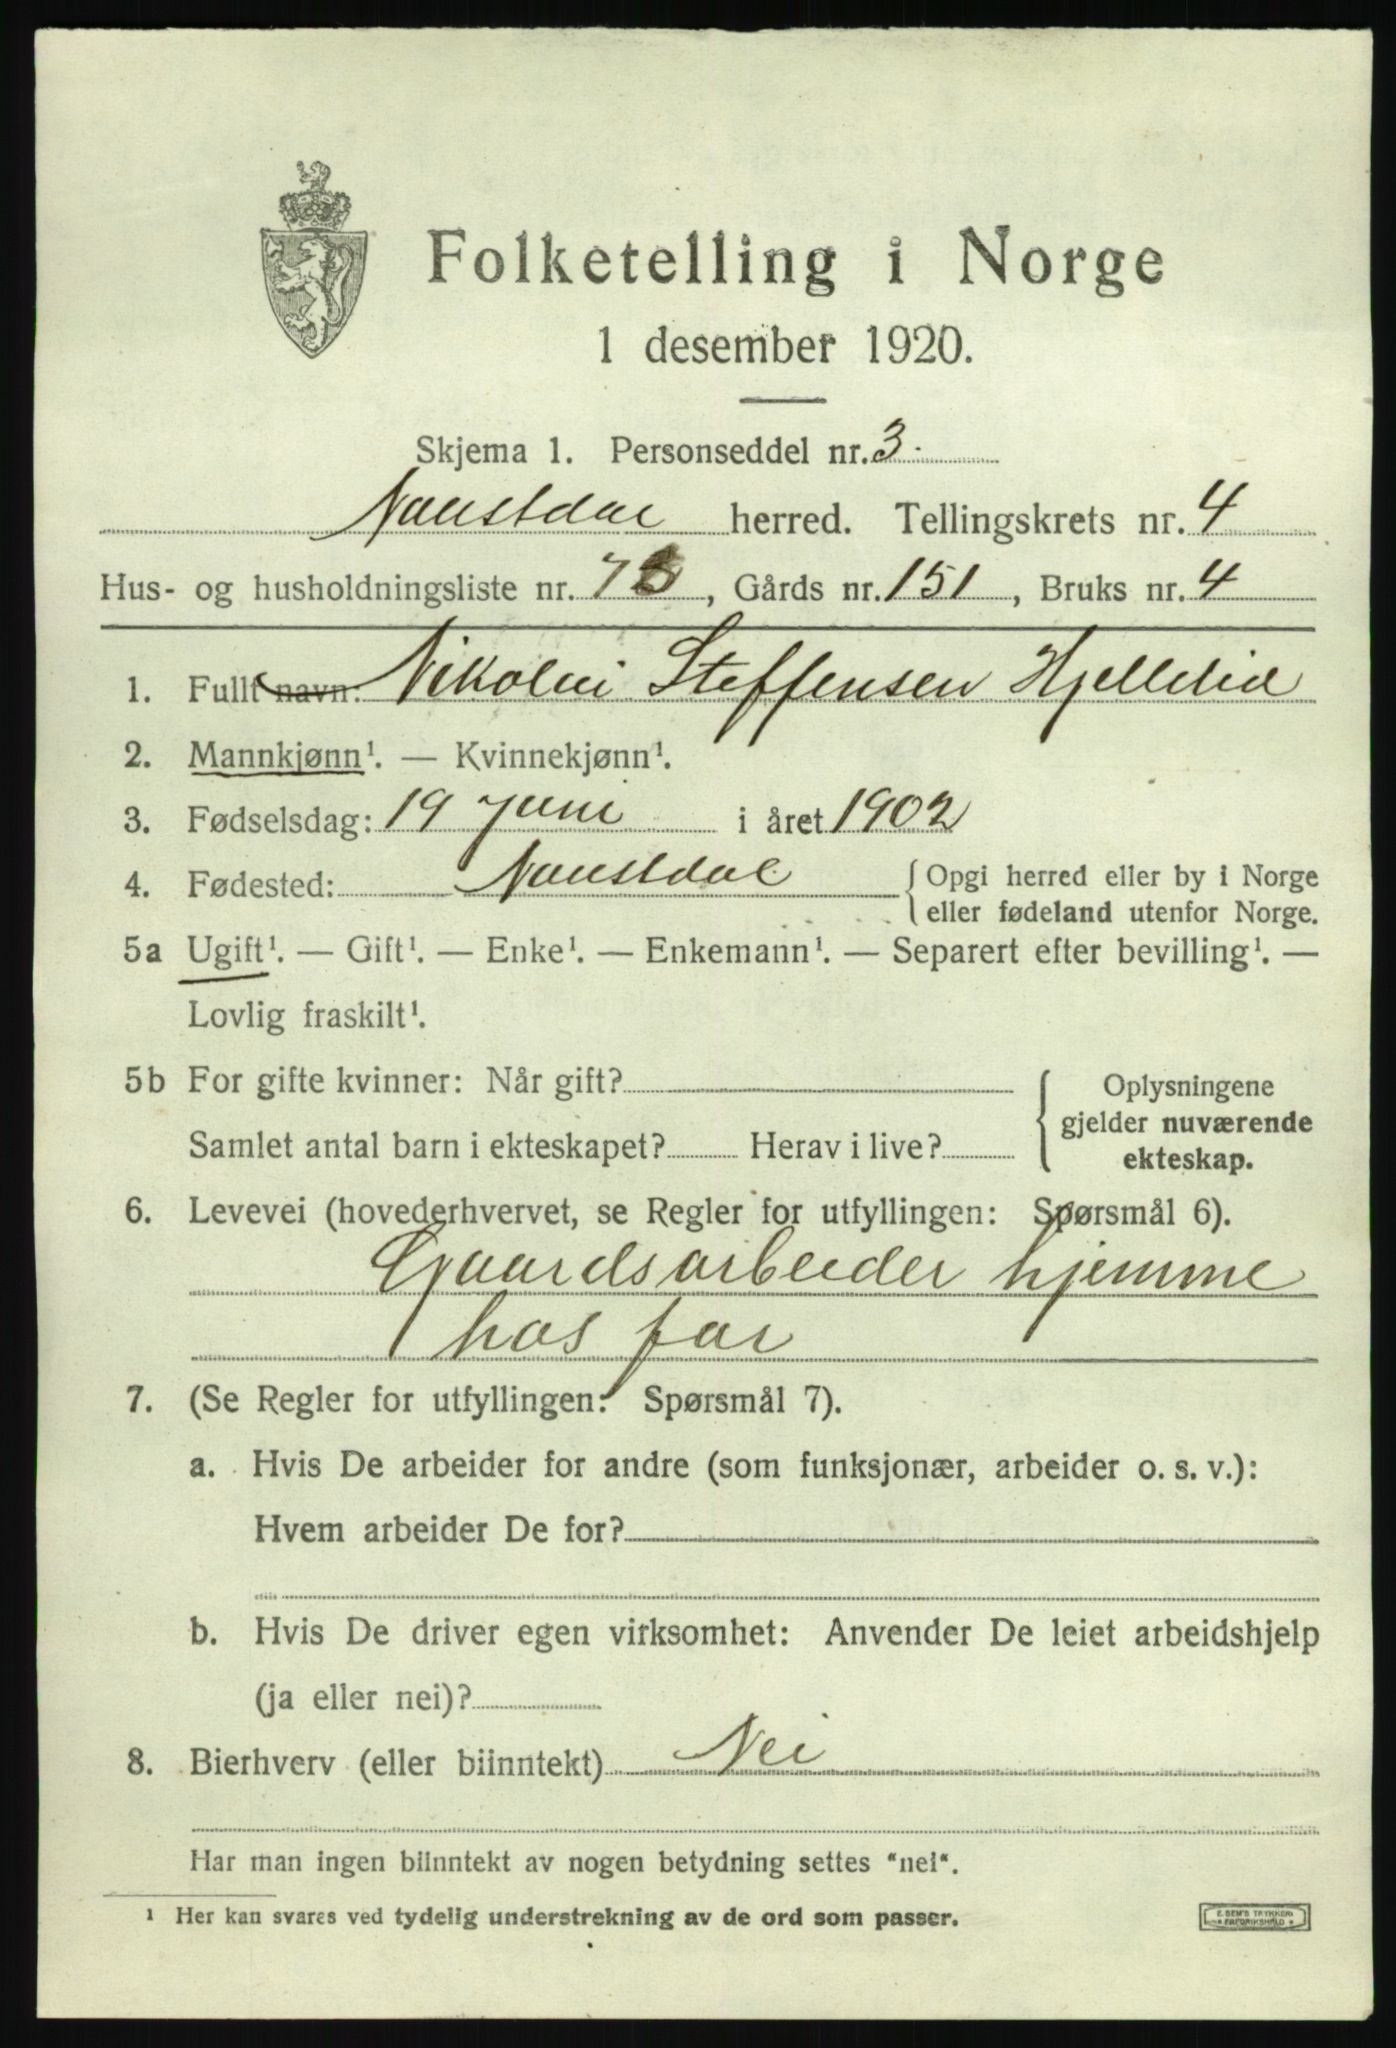 Folketelling i Norge
1 desember 1920.
Skjema 1. Personseddel nr. 3.
Naustdal herred. Tellingskrets nr. 4
Hus- og husholdningsliste nr. , Gårds nr. 151, Bruks nr. 4
1. Fullt navn: Nikolai Steffensen Hjellelid
2. Mannkjønn¹. — Kvinnekjønn¹.
3. Fødselsdag: 19 Juni i året 1902
4. Fødested: Naustdal {Opgi herred eller by i Norge
eller fødeland utenfor Norge.
5a Ugift¹. — Gift¹. — Enke¹. — Enkemann¹. — Separert efter bevilling¹. —
Lovlig fraskilt¹.
5b For gifte kvinner: Når gift?
Samlet antal barn i ekteskapet? Herav i live?
Oplysningene
gjelder nuværende
ekteskap.
6. Levevei (hovederhvervet, se Regler for utfyllingen: Spørsmål 6).
Gaardsarbeider hjemme
hos far
7. (Se Regler for utfyllingen: Spørsmål 7).
a. Hvis De arbeider for andre (som funksjonær, arbeider o. s. v.):
Hvem arbeider De for?
b. Hvis De driver egen virksomhet: Anvender De leiet arbeidshjelp
(ja eller nei)?
8. Bierhverv (eller biinntekt) Nei
Har man ingen biinntekt av nogen betydning settes "nei".
¹ Her kan svares ved tydelig understrekning av de ord som passer.
E. SEM'S TRYKKERI
FREDRIKSHALD